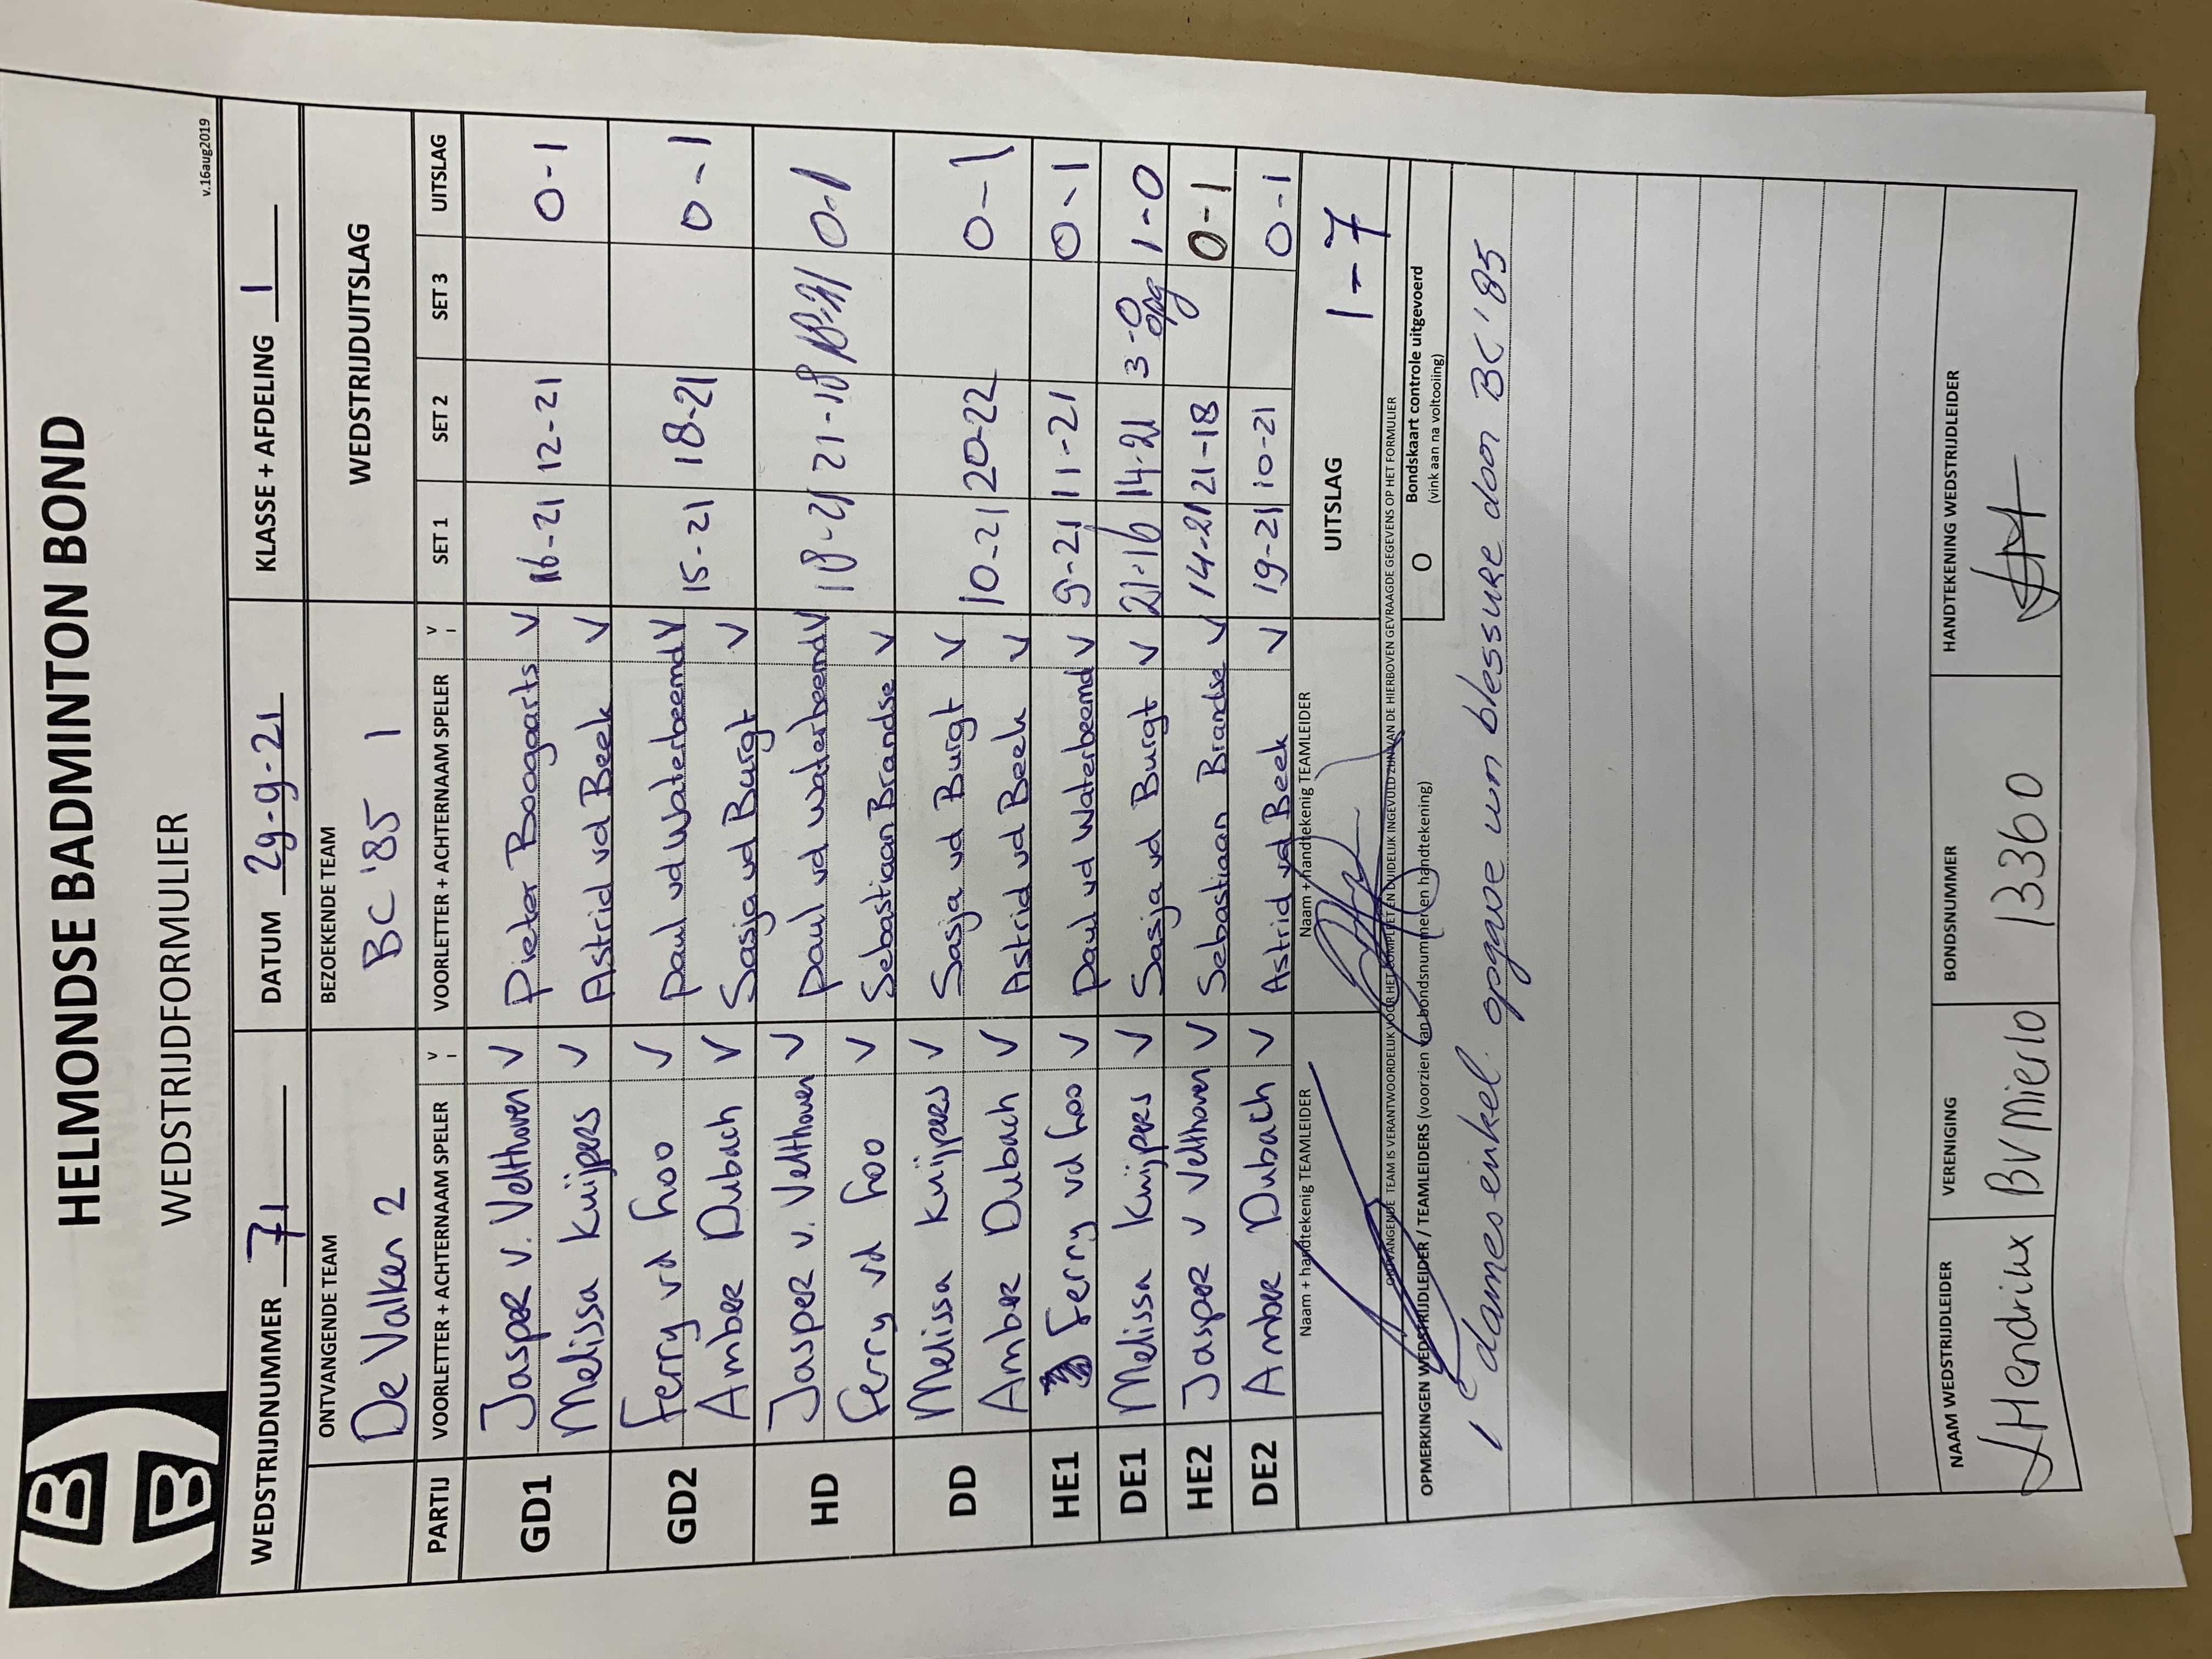 HELMONDSE BADMINTON BOND
WEDSTRIJDFORMULIER
v.16aug2019
WEDSTRIJDNUMMER 71 DATUM 29-9-21 KLASSE + AFDELING 1
ONTVANGENDE TEAM BEZOEKENDE TEAM WEDSTRIJDUITSLAG
De Valken 2 BC '85 1
PARTIJ VOORLETTER + ACHTERNAAM SPELER V VOORLETTER + ACHTERNAAM SPELER V SET 1 SET 2 SET 3 UITSLAG
GD1 Jasper v. Velthoven V Pieter Boogaarts V 16-21 12-21 0-1
Melissa Kuijpers V Astrid vd Beek V
GD2 Ferry vd Loo V Paul vd Waterbeemd V 15-21 18-21 0-1
Amber Dubach V Sasja vd Burgt V
HD Jasper v. Velthoven V Paul vd Waterbeemd V 18-21 21-18 18-21 0-1
Ferry vd Loo V Sebastiaan Brandse V
DD Melissa Kuijpers V Sasja vd Burgt V 10-21 20-22 0-1
Amber Dubach V Astrid vd Beek V
HE1 Ferry vd Loo V Paul vd Waterbeemd V 9-21 11-21 0-1
DE1 Melissa Kuijpers V Sasja vd Burgt V 21-16 14-21 3-0 opg 1-0
HE2 Jasper v Velthoven V Sebastiaan Brandse V 14-21 21-18 0-1
DE2 Amber Dubach V Astrid vd Beek V 19-21 10-21 0-1
Naam + handtekenig TEAMLEIDER Naam + handtekenig TEAMLEIDER UITSLAG 1-7
ONTVANGENDE TEAM IS VERANTWOORDELIJK VOOR HET COMPLEET EN DUIDELIJK INGEVULD ZIJN VAN DE HIERBOVEN GEVRAAGDE GEGEVENS OP HET FORMULIER
OPMERKINGEN WEDSTRIJDLEIDER / TEAMLEIDERS (voorzien van bondsnummer en handtekening) O Bondskaart controle uitgevoerd
(vink aan na voltooiing)
1e dames enkel. opgave ivm blessure door BC '85
NAAM WEDSTRIJDLEIDER VERENIGING BONDSNUMMER HANDTEKENING WEDSTRIJDLEIDER
Hendrikx BV Mierlo 13360